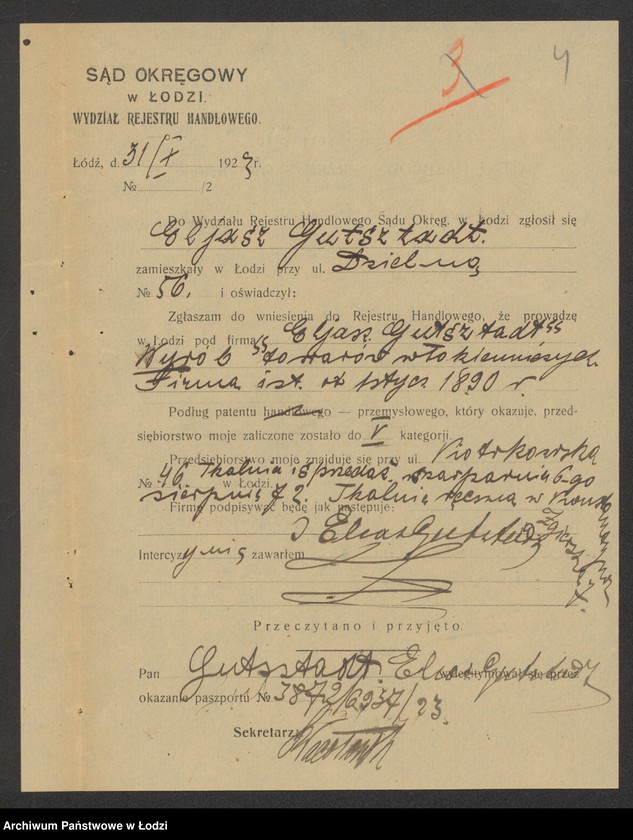 3 4
SĄD OKRĘGOWY
w ŁODZI.
WYDZIAŁ REJESTRU HANDLOWEGO.
Łódź, d. 31/X 1923 r.
№ /2
Do Wydziału Rejestru Handlowego Sądu Okręg. w Łodzi zgłosił się
Eljasz Gutsztadt.
zamieszkały w Łodzi przy ul. Dzielną
№ 56. i oświadczył:
Zgłaszam do wniesienia do Rejestru Handlowego, że prowadzę
w Łodzi pod firmą "Eljasz Gutsztadt"
Wyrób towarów włókienniczych.
Firma ist. od stycz 1890 r.
Podług patentu handlowego — przemysłowego, który okazuje, przed-
siębiorstwo moje zaliczone zostało do V kategorji
Przedsiębiorstwo moje znajduje się przy ul. Piotrkowską
№ 46, w Łodzi. Tkalnia i sprzedaż, 6-go
sierpnia 72. Tkalnia ręczna w
Firmę podpisywać będę jak następuje:
Intercyzy nie zawarłem
Przeczytano i przyjęto.
Pan Gutsztadt wylegitymował się przez
okazanie paszportu № 3872/6937/23.
Sekretarz:
Archiwum Państwowe w Łodzi